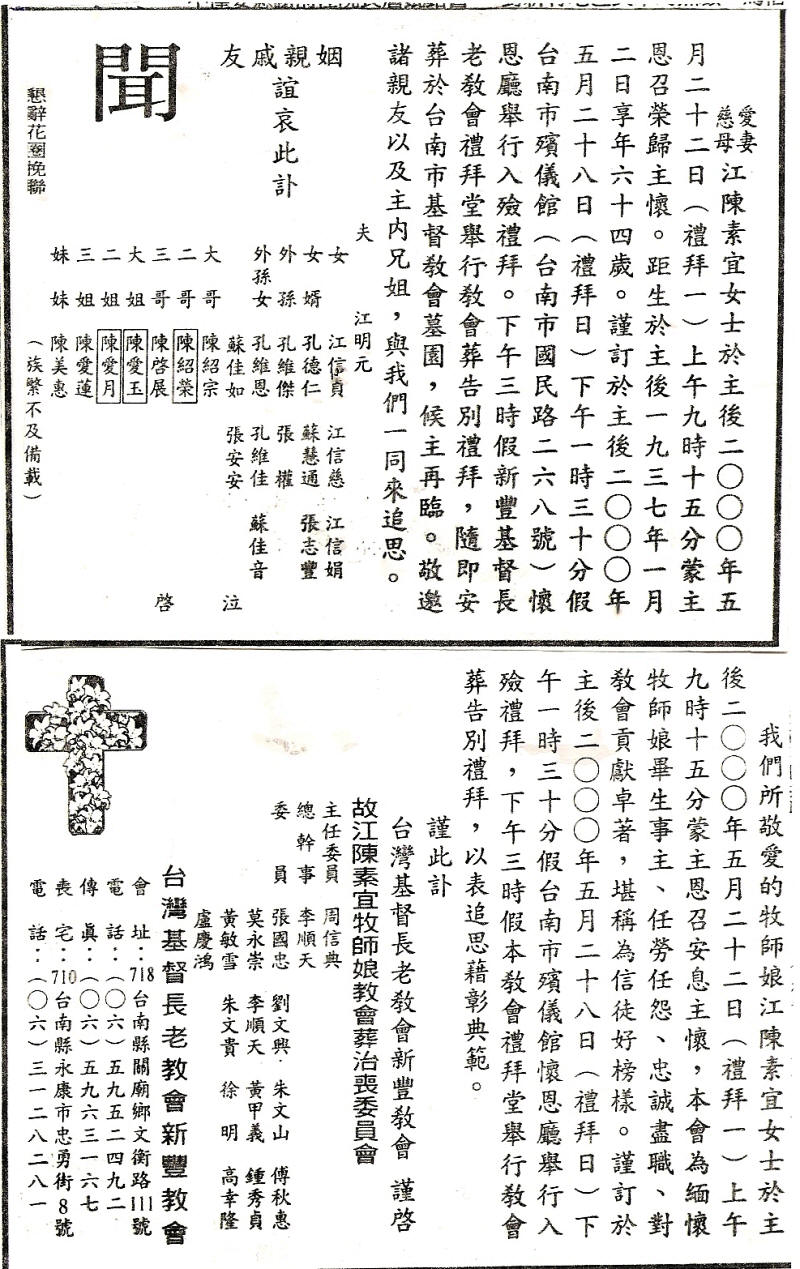 愛妻
慈母
江陳素宜女士於主後二〇〇〇年五
月二十二日（禮拜一）上午九時十五分蒙主
恩召榮歸主懷。距生於主後一九三七年一月
二日享年六十四歲。謹訂於主後二〇〇〇年
五月二十八日（禮拜日）下午一時三十分假
台南市殯儀館（台南市國民路二六八號）懷
恩廳舉行入殮禮拜。下午三時假新豐基督長
老教會禮拜堂舉行教會葬告別禮拜，隨即安
葬於台南市基督教會墓園，候主再臨。敬邀
諸親友以及主內兄姐，與我們一同來追思。
姻親戚友
誼哀此訃
聞
懇辭花圈挽聯
夫 江明元
女 江信貞 江信慈 江信娟
女婿 孔德仁 蘇慧通 張志豐
外孫 孔維傑 張權
外孫女 孔維恩 孔維佳 蘇佳音
蘇佳如 張安安
大哥 陳紹宗
二哥 陳紹榮
三哥 陳啓展
大姐 陳愛玉
二姐 陳愛月
三姐 陳愛蓮
妹妹 陳美惠
（族繁不及備載）
泣
啓
我們所敬愛的牧師娘江陳素宜女士於主
後二〇〇〇年五月二十二日（禮拜一）上午
九時十五分蒙主恩召安息主懷，本會為緬懷
牧師娘畢生事主、任勞任怨、忠誠盡職、對
教會貢獻卓著，堪稱為信徒好榜樣。謹訂於
主後二〇〇〇年五月二十八日（禮拜日）下
午一時三十分假台南市殯儀館懷恩廳舉行入
殮禮拜，下午三時假本教會禮拜堂舉行教會
葬告別禮拜，以表追思藉彰典範。
謹此訃
台灣基督長老教會新豐教會 謹啓
故江陳素宜牧師娘教會葬治喪委員會
主任委員 周信典
總幹事 李順天
委員 張國忠 劉文興 朱文山 傅秋惠
莫永崇 李順天 黃甲義 鍾秀貞
黃敏雪 朱文貴 徐明 高幸隆
盧慶鴻
台灣基督長老教會新豐教會
會址：718台南縣關廟鄉文衡路111號
電話：（〇六）五九五二四九二
傳真：（〇六）五九六三一六七
喪宅：710台南縣永康市忠勇街8號
電話：（〇六）三一二八二八一